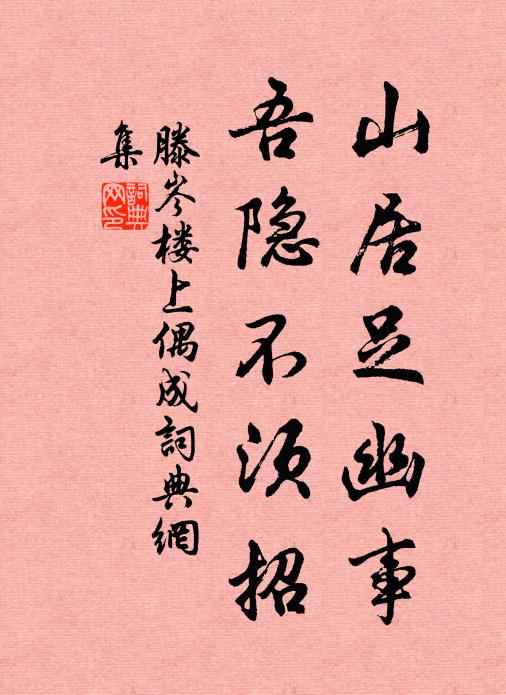 山居足幽事
吾隐不须招
滕岑楼上偶成詞典網
集
詞典
网印